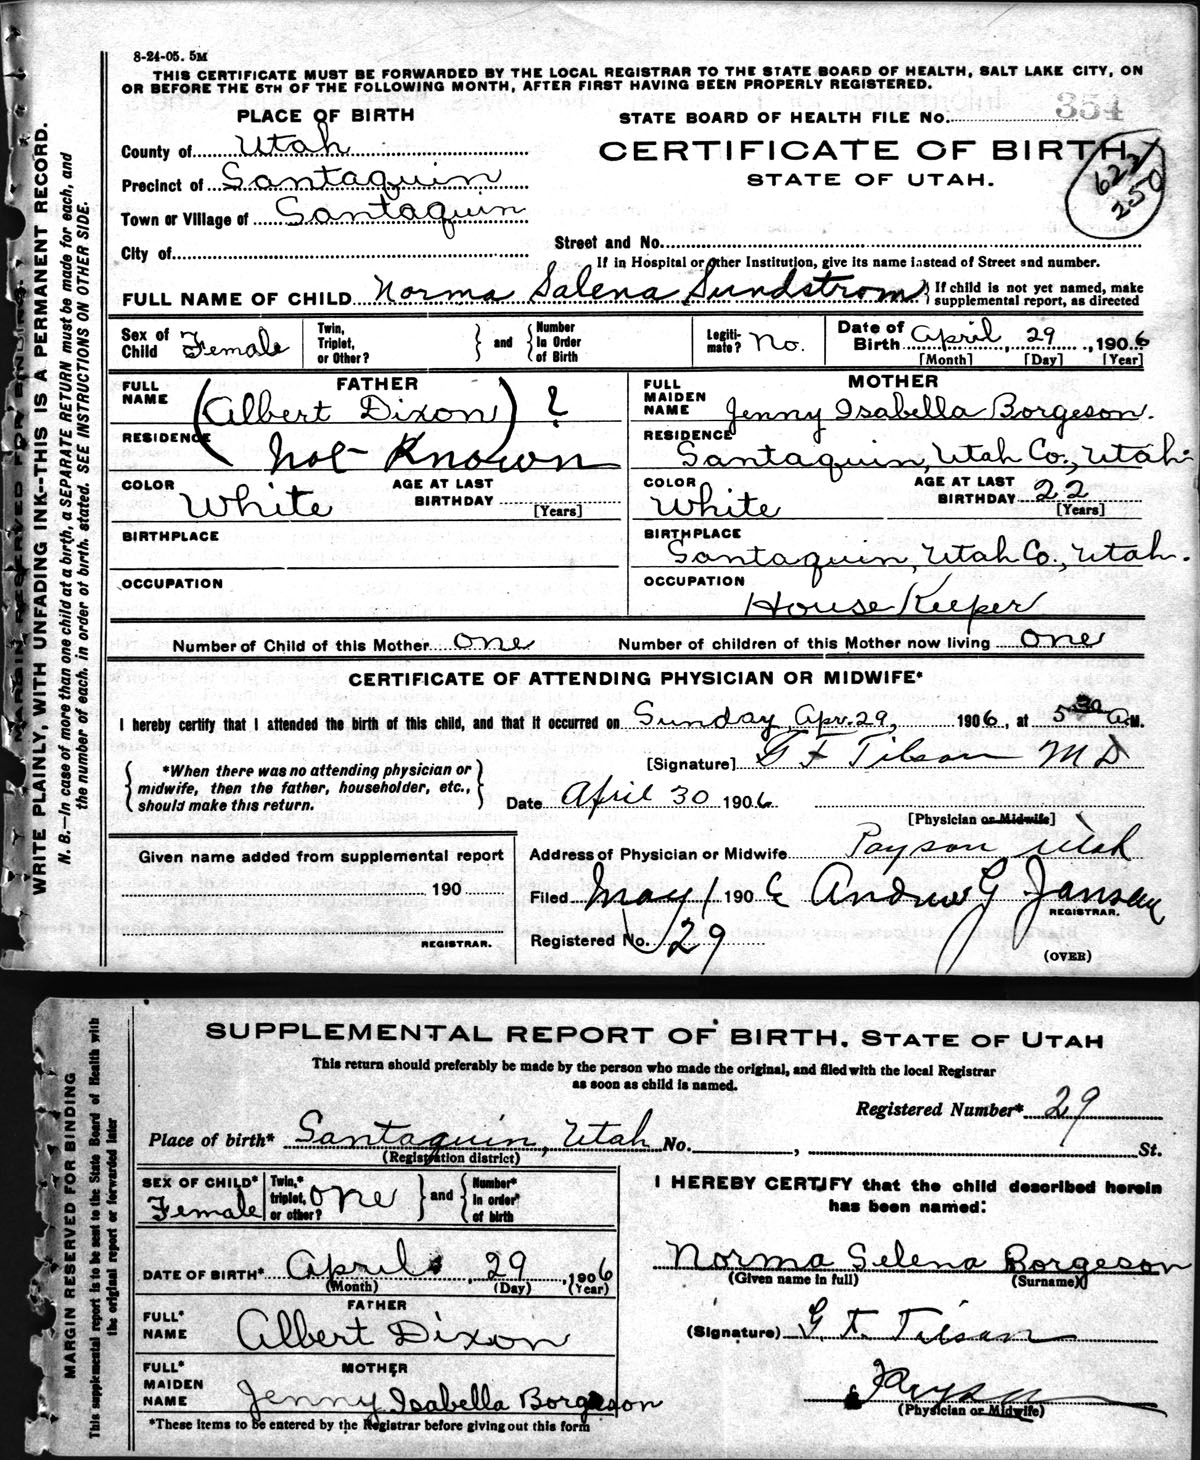 8-24-05. 5M
THIS CERTIFICATE MUST BE FORWARDED BY THE LOCAL REGISTRAR TO THE STATE BOARD OF HEALTH, SALT LAKE CITY, ON
OR BEFORE THE 5TH OF THE FOLLOWING MONTH, AFTER FIRST HAVING BEEN PROPERLY REGISTERED.
PLACE OF BIRTH
STATE BOARD OF HEALTH FILE No. 354
County of Utah
CERTIFICATE OF BIRTH
Precinct of Santaquin
STATE OF UTAH.
622
250
Town or Village of Santaquin
City of
Street and No.
If in Hospital or Other Institution, give its name instead of Street and number.
FULL NAME OF CHILD Norma Salena Sundstrom } If child is not yet named, make
supplemental report, as directed
Sex of Child Female
Twin, Triplet, or Other? } and { Number In Order of Birth
Legiti-mate? No.
Date of Birth April, 29, 1906
[Month] [Day] [Year]
FATHER
FULL NAME (Albert Dixon) ?
RESIDENCE Not Known
COLOR White
AGE AT LAST BIRTHDAY [Years]
BIRTHPLACE
OCCUPATION
MOTHER
FULL MAIDEN NAME Jenny Isabella Borgeson.
RESIDENCE Santaquin, Utah Co., Utah.
COLOR White
AGE AT LAST BIRTHDAY 22 [Years]
BIRTHPLACE Santaquin, Utah Co., Utah.
OCCUPATION House Keeper
Number of Child of this Mother one
Number of children of this Mother now living one
CERTIFICATE OF ATTENDING PHYSICIAN OR MIDWIFE*
I hereby certify that I attended the birth of this child, and that it occurred on Sunday Apr. 29, 1906, at 5 30 A.M.
[Signature] G F Tilson M D
{ *When there was no attending physician or
midwife, then the father, householder, etc.,
should make this return. }
Date April 30 1906
[Physician or Midwife]
Given name added from supplemental report
190
REGISTRAR.
Address of Physician or Midwife Payson Utah
Filed May 1 1906 Andrew G Jansen
REGISTRAR.
Registered No. 29
(OVER)
MARGIN RESERVED FOR BINDING.
WRITE PLAINLY, WITH UNFADING INK--THIS IS A PERMANENT RECORD.
N. B.—In case of more than one child at a birth, a SEPARATE RETURN must be made for each, and
the number of each, in order of birth, stated. SEE INSTRUCTIONS ON OTHER SIDE.
SUPPLEMENTAL REPORT OF BIRTH. STATE OF UTAH
This return should preferably be made by the person who made the original, and filed with the local Registrar
as soon as child is named.
Registered Number* 29
Place of birth* Santaquin, Utah No. , St.
(Registration district)
SEX OF CHILD* Female
Twin,* triplet, or other? one } and { Number* In order* of birth
I HEREBY CERTIFY that the child described herein
has been named:
DATE OF BIRTH* April, 29, 1906
(Month) (Day) (Year)
Norma Selena Borgeson
(Given name in full) (Surname)
FATHER
FULL* NAME Albert Dixon
(Signature) G F Tilson
MOTHER
FULL* MAIDEN NAME Jenny Isabella Borgeson
Payson
(Physician or Midwife)
*These items to be entered by the Registrar before giving out this form
MARGIN RESERVED FOR BINDING
This supplemental report to be sent to the State Board of Health with
the original report or forwarded later